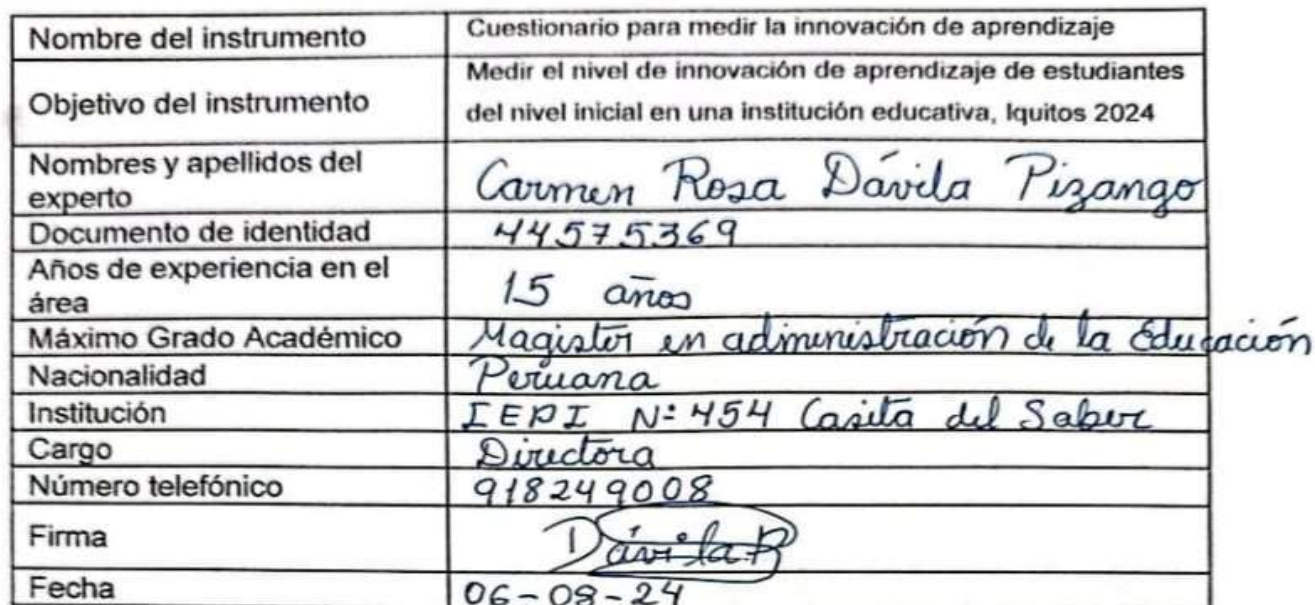 Nombre del instrumento
Cuestionario para medir la innovación de aprendizaje
Objetivo del instrumento
Medir el nivel de innovación de aprendizaje de estudiantes
del nivel inicial en una institución educativa, Iquitos 2024
Nombres y apellidos del
experto
Carmen Rosa Dávila Pizango
Documento de identidad
44575369
Años de experiencia en el
área
15 años
Máximo Grado Académico
Magister en administración de la Educación
Nacionalidad
Peruana
Institución
IEPI N° 454 Casita del Saber
Cargo
Directora
Número telefónico
918249008
Firma
Dávila P
Fecha
06-08-24